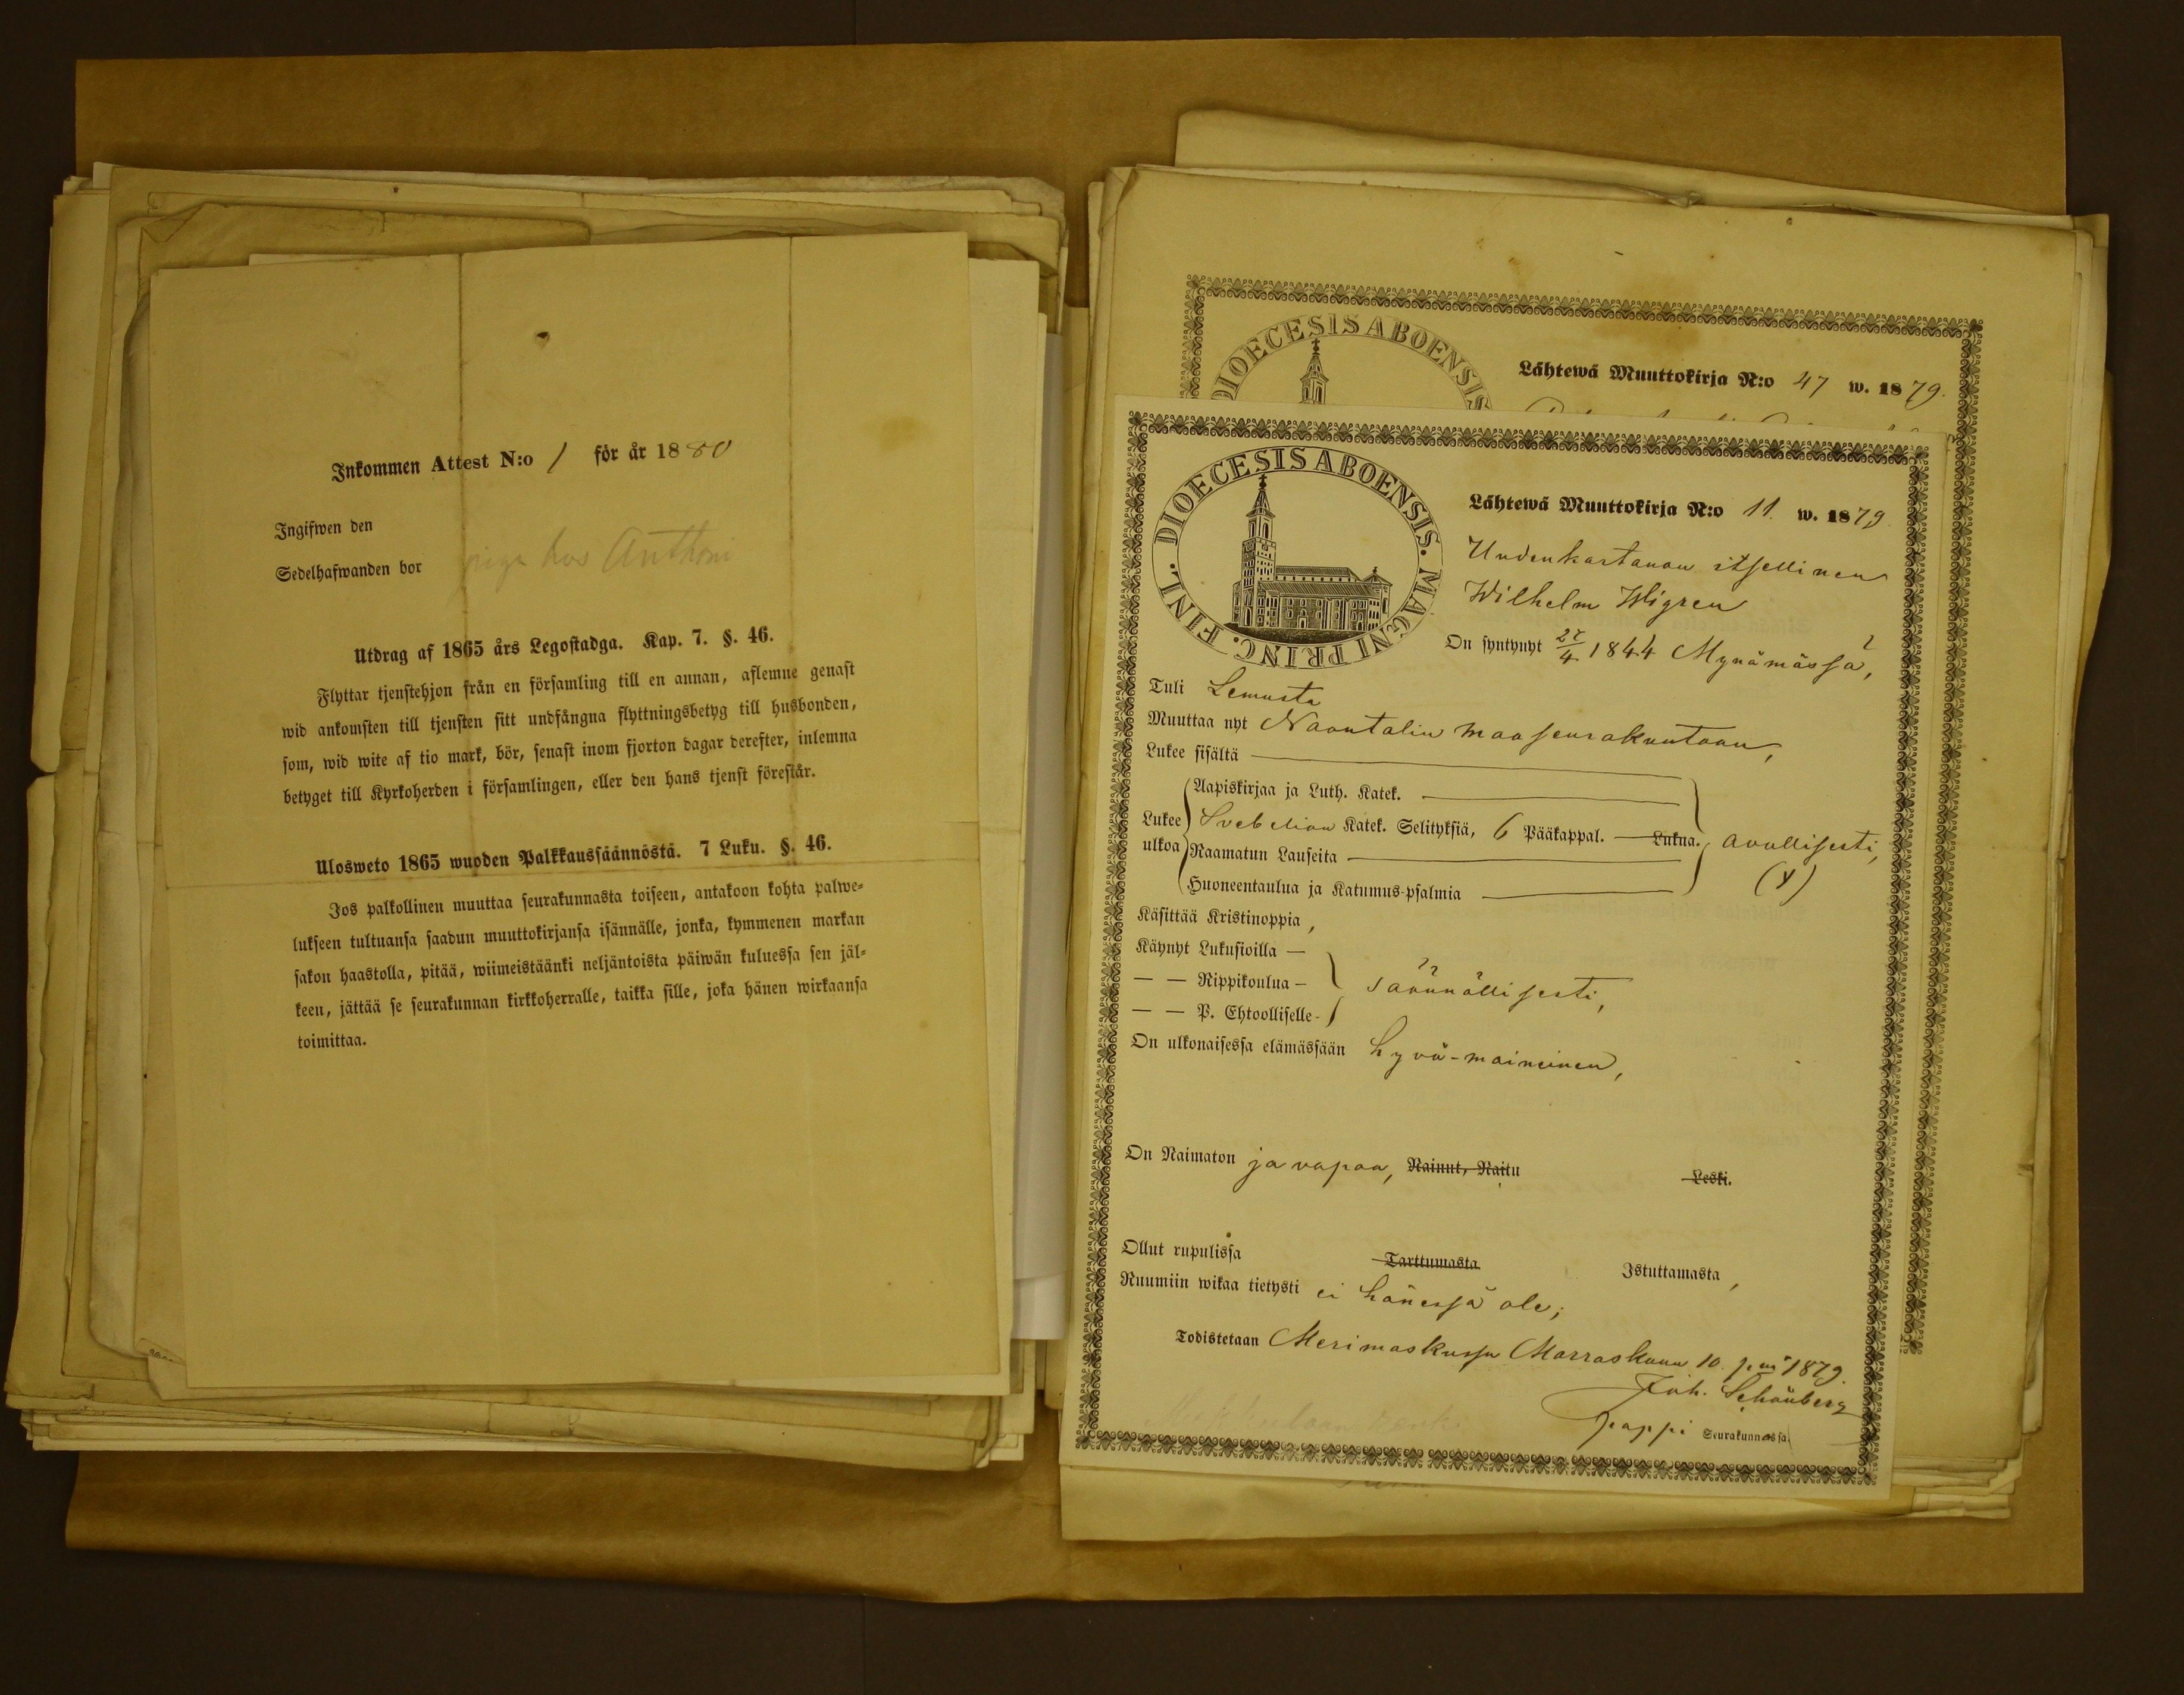 Inkommen Attest N:o 1 för år 1880
Ingifwen den
Sedelhafwanden bor piga hos Anthoni
Utdrag af 1865 års Legostadga. Kap. 7. §. 46.
Flyttar tjenstehjon från en församling till en annan, aflemne genast
wid ankomsten till tjensten sitt undfångna flyttningsbetyg till husbonden,
som, wid wite af tio mark, bör, senast inom fjorton dagar derefter, inlemna
betyget till Kyrkoherden i församlingen, eller den hans tjenst förestår.
Ulosweto 1865 wuoden Palkkaussäännöstä. 7 Luku. §. 46.
Jos palkollinen muuttaa seurakunnasta toiseen, antakoon kohta palwe-
lukseen tultuansa saadun muuttokirjansa isännälle, jonka, kymmenen markan
sakon haastolla, pitää, wiimeistäänki neljäntoista päiwän kuluessa sen jäl-
keen, jättää se seurakunnan kirkkoherralle, taikka sille, joka hänen wirkaansa
toimittaa.
DIOECESIS ABOENSIS
Lähtewä Muuttokirja N:o 47 w. 1879.
DIOECESIS ABOENSIS. MAGNI PRINC. FINL.
Lähtewä Muuttokirja N:o 11. w. 1879
Uudenkartanon itsellinen
Wilhelm Wigren
On syntynyt 27/4 1844 Mynämässä,
Tuli Lemusta
Muuttaa nyt Naantalin maaseurakuntaan,
Lukee sisältä
Aapiskirjaa ja Luth. Katek.
Lukee ulkoa Svebelion Katek. Selityksiä, 6 Pääkappal. Lukua. avullisesti,
Raamatun Lauseita
Huoneentaulua ja Katumus-psalmia
Käsittää Kristinoppia,
Käynyt Lukusioilla —
— — Rippikoulua — säännöllisesti,
— — P. Ehtoolliselle -
On ulkonaisessa elämässään hyvä-maineinen,
On Naimaton ja vapaa, Nainut, Naitu Leski.
Ollut rupulissa Tarttumasta Istuttamasta,
Ruumiin wikaa tietysti ei hänessä ole;
Todistetaan Merimaskussa Marraskuun 10. p:nä 1879.
Joh. Schönberg
pappi Seurakunnassa